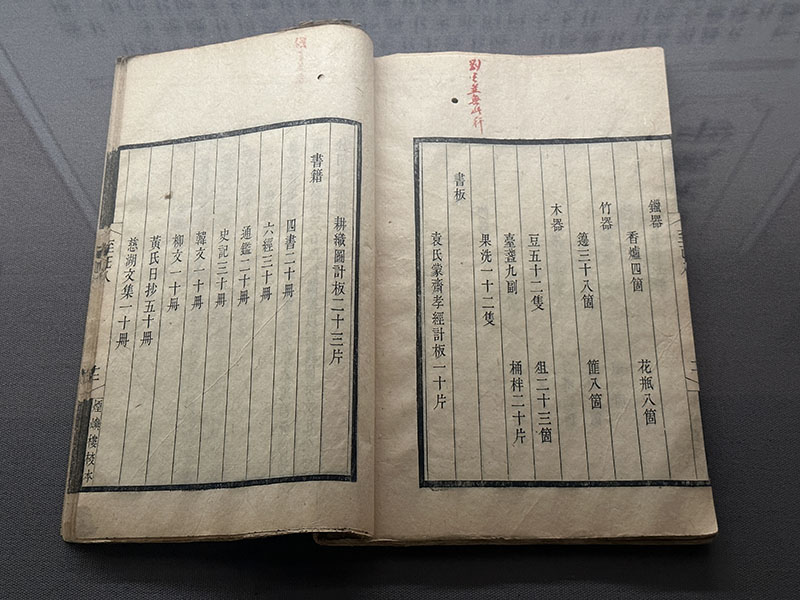 鑞器
香爐四箇　花瓶八箇
竹器
籩三十八箇　篚八箇
木器
豆五十二隻　俎二十三箇
臺盞九副　桶柈二十片
果洗一十二隻
書板
袁氏蒙齋孝經計板一十片
耕織圖計板二十三片
書籍
四書二十冊
六經三十冊
通鑑二十冊
史記三十冊
韓文一十冊
柳文一十冊
黃氏日抄五十冊
慈湖文集一十冊
煙嶼樓校本